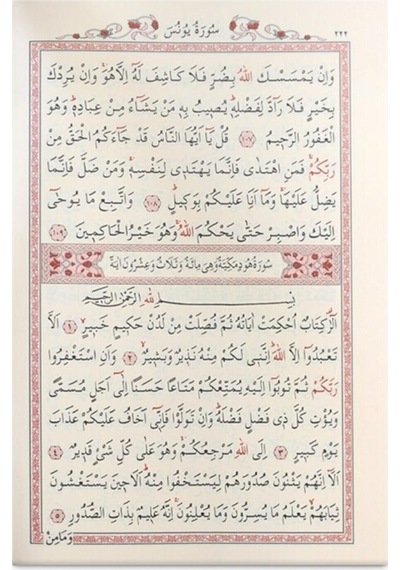 سُورَةُ يُونُسَ ٢٢٢
وَاِنْ يَمْسَسْكَ اللّٰهُ بِضُرٍّ فَلَا كَاشِفَ لَهُٓ اِلَّا هُوَۚ وَاِنْ يُرِدْكَ
بِخَيْرٍ فَلَا رَٓادَّ لِفَضْلِه۪ۜ يُص۪يبُ بِه۪ مَنْ يَشَٓاءُ مِنْ عِبَادِه۪ۜ وَهُوَ
الْغَفُورُ الرَّح۪يمُ ١٠٧ قُلْ يَٓا اَيُّهَا النَّاسُ قَدْ جَٓاءَكُمُ الْحَقُّ مِنْ
رَبِّكُمْۚ فَمَنِ اهْتَدٰى فَاِنَّمَا يَهْتَد۪ي لِنَفْسِه۪ۚ وَمَنْ ضَلَّ فَاِنَّمَا
يَضِلُّ عَلَيْهَاۚ وَمَٓا اَنَا۬ عَلَيْكُمْ بِوَك۪يلٍۜ ١٠٨ وَاتَّبِعْ مَا يُوحٰٓى
اِلَيْكَ وَاصْبِرْ حَتّٰى يَحْكُمَ اللّٰهُۚ وَهُوَ خَيْرُ الْحَاكِم۪ينَ ١٠٩
سُورَةُ هُودٍ مَكِّيَّةٌ وَهِيَ مِائَةٌ وَثَلَاثٌ وَعِشْرُونَ اٰيَةً
بِسْمِ اللّٰهِ الرَّحْمٰنِ الرَّح۪يمِ
الٓرٰ۠ كِتَابٌ اُحْكِمَتْ اٰيَاتُهُ ثُمَّ فُصِّلَتْ مِنْ لَدُنْ حَك۪يمٍ خَب۪يرٍۙ ١ اَلَّا
تَعْبُدُٓوا اِلَّا اللّٰهَۜ اِنَّن۪ي لَكُمْ مِنْهُ نَذ۪يرٌ وَبَش۪يرٌۙ ٢ وَاَنِ اسْتَغْفِرُوا
رَبَّكُمْ ثُمَّ تُوبُٓوا اِلَيْهِ يُمَتِّعْكُمْ مَتَاعًا حَسَنًا اِلٰٓى اَجَلٍ مُسَمًّى
وَيُؤْتِ كُلَّ ذ۪ي فَضْلٍ فَضْلَهُۜ وَاِنْ تَوَلَّوْا فَاِنّ۪ٓي اَخَافُ عَلَيْكُمْ عَذَابَ
يَوْمٍ كَب۪يرٍ ٣ اِلَى اللّٰهِ مَرْجِعُكُمْۚ وَهُوَ عَلٰى كُلِّ شَيْءٍ قَد۪يرٌ ٤
اَلَٓا اِنَّهُمْ يَثْنُونَ صُدُورَهُمْ لِيَسْتَخْفُوا مِنْهُۜ اَلَا ح۪ينَ يَسْتَغْشُونَ
ثِيَابَهُمْۙ يَعْلَمُ مَا يُسِرُّونَ وَمَا يُعْلِنُونَۚ اِنَّهُ عَل۪يمٌ بِذَاتِ الصُّدُورِ ٥
وَمَا مِنْ